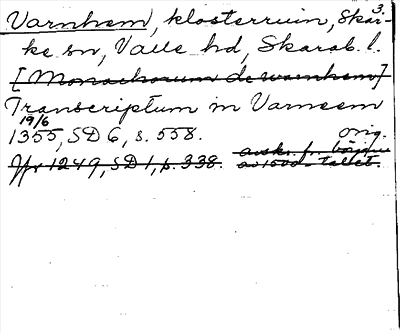 3.
Varnhem, klosterruin, Skär-
ke sn, Valle hd, Skarab. l.
[Monachorum de warnhem]
Transcriptum in Varneem
19/6
1355, SD 6, s. 558. orig.
Jfr 1249, SD 1, s. 338. avskr. fr. början
av 1500-talet.